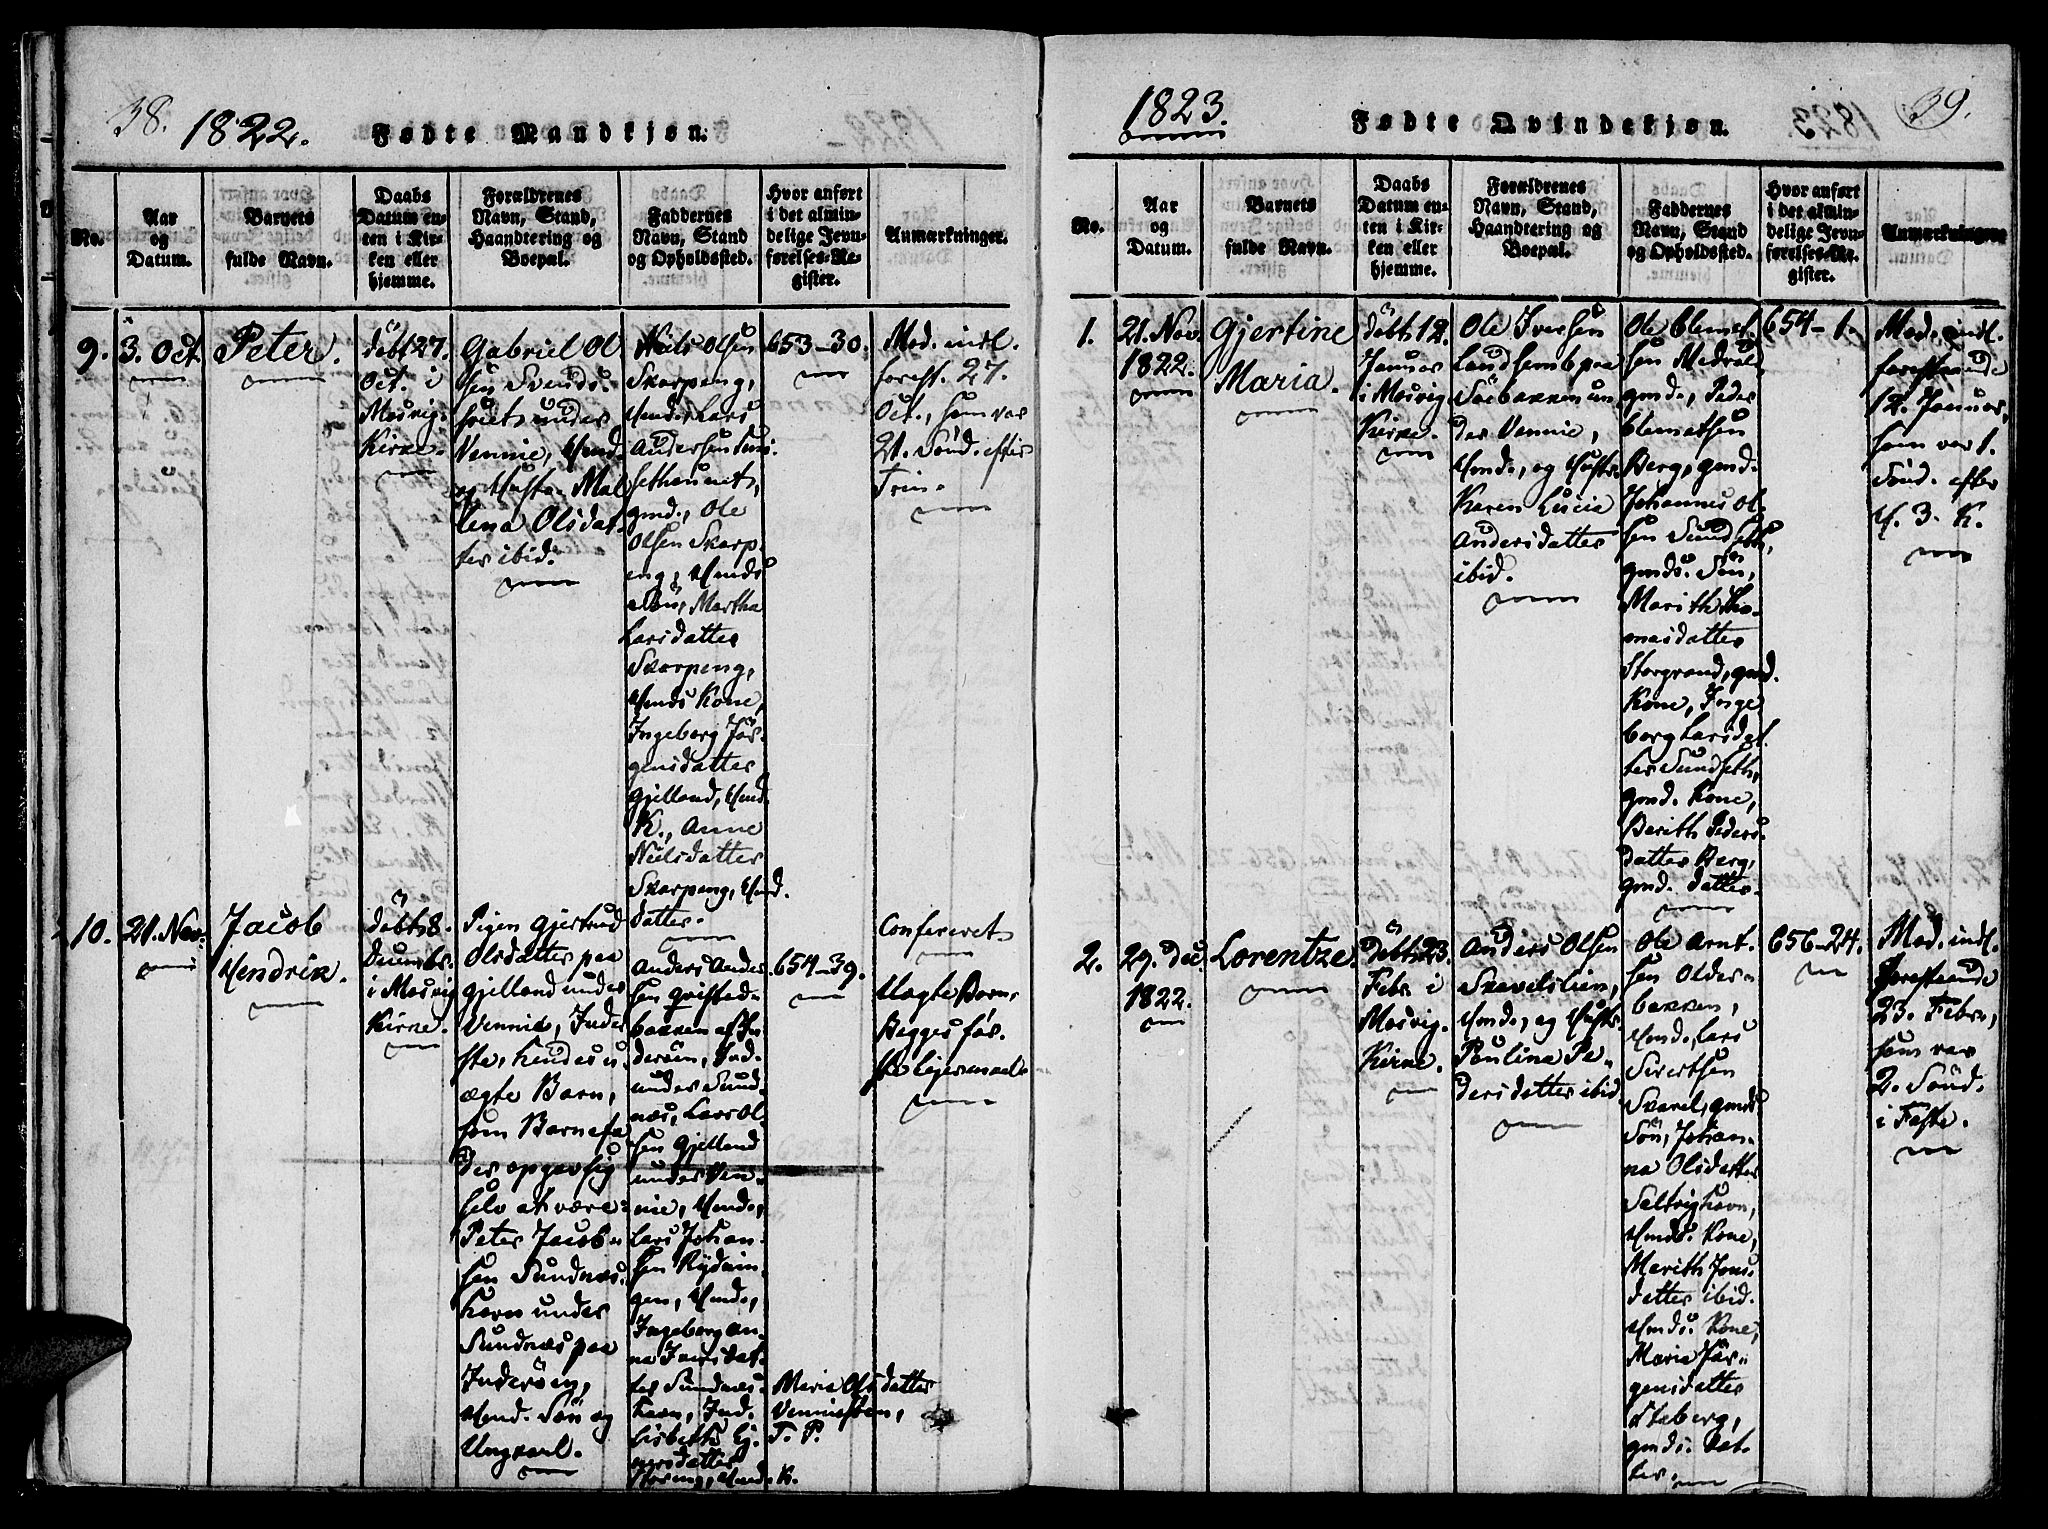 38.
1822.
Fødte Mandkjøn.
No.
Aar
og
Datum.
Barnets
fulde Navn.
Daabs
Datum en-
ten i Kir-
ken eller
hjemme.
Forældrenes
Navn, Stand,
Haandtering og
Boepæl.
Faddernes
Navn, Stand
og Opholdssted.
Hvor anført
i det almin-
delige Jevn-
førelses-Re-
gister.
Anmærkninger.
9.
3. Oct.
Peter.
döbt 27.
Oct. i
Mosvig-
Kirke.
Gabriel Ol
sen Svends-
under
Vennie, Hmd.
og Hustr. Mal
lena Olsdat-
ter ibid.
Niels Olsen
Skarpeng,
Hmd. Lars
Andersen
gmd., Ole
Olsen Skarp-
eng, Hmds
Sön, Martha
Larsdatter
Skarpeng,
Hmds Kone,
Ingeborg Jör-
gensdatter
Gjelland, Hmd.
K., Anne
Nielsdatter
Skarpeng, Hmd.
datter.
653-30.
Mod. indl.
forest. 27.
Oct., som var
21. Sönd. efter
Trin.
10.
21. Nov.
Jacob
Hendrik.
döbt 8.
Decembr.
i Mosvig
Kirke.
Pigen Gjertrud
Olsdatter paa
Gjelland under
Vennie, Inder
ste, hendes u-
ægte Barn,
som Barnefa
der opgav sig
selv at være:
Peter Jacob-
sen Sundnæs-
havn under
Sundnæs paa
Inderöen,
Hmd. Sön og
Ungkarl.
Anders Ander
sen Qvisted-
bakken af In-
deröen, Ind.
under Sund-
næs, Lars Ol-
sen Gjelland
under Ven-
nie, Hmd.,
Lars Johan-
sen Rydnin-
gen, Hmd.,
Ingeborg An-
na Jensdat-
ter Sundnæs-
havn, Ind.
Lisbeth Ej-
nersdatter
Hmd. K.
Maria Olsdatter
T. P.
654-39.
Confereret
Uægte Born,
Begges för-
ste Lejermaal.
1823.
Fødte Qvindekjøn.
39.
No.
Aar
og
Datum.
Barnets
fulde Navn.
Daabs
Datum en-
ten i Kir-
ken eller
hjemme.
Forældrenes
Navn, Stand,
Haandtering og
Boepæl.
Faddernes
Navn, Stand
og Opholdssted.
Hvor anført
i det almin-
delige Jevn-
førelses-Re-
gister.
Anmærkninger
1.
21. Nov.
1822.
Gjertine
Maria.
döbt 12.
Januar
i Mosvig
Kirke.
Ole Iversen
Landsem paa
Söebakken un-
der Vennie,
Hmd., og Hustr.
Karen Lucia
Andersdatter
ibid.
Ole Clemet-
sen Medraa
gmd., Peder
Clemetsen
Berg, gmd.
Johannes Ol-
sen Sundseth,
gmds. Sön,
Marith Tho-
masdatter
Storgrand, gmd.
Kone, Inge
borg Larsdat-
ter Sundseth,
gmd. Kone,
Berith Peders-
datter Berg,
gmd. datter.
654-1.
Mod. indl.
forestaaende
12. Januar,
som var 1.
Sönd. efter
H. 3. K.
2.
29. Dec.
1822.
Lorentze.
döbt 23.
Febr. i
Mosvig-
Kirke.
Anders Olsen
Skavelslien,
Hmd., og Hustr.
Paulina Pe-
dersdatter ibid.
Ole Arnt-
sen Older-
bakken,
Hmd., Lars
Sivertsen
Skavel, gmds
Sön, Johan-
na Olsdatter
Saltvighavn,
Hmds. Kone,
Marith Jons-
datter ibid.
Hmds. Kone,
Maria Jör-
gensdatter
Aaberg,
gmds. Dat-
ter.
656-24.
Mod. indl.
forestaaende
23. Febr.,
som var
2. Sönd.
i Faste.